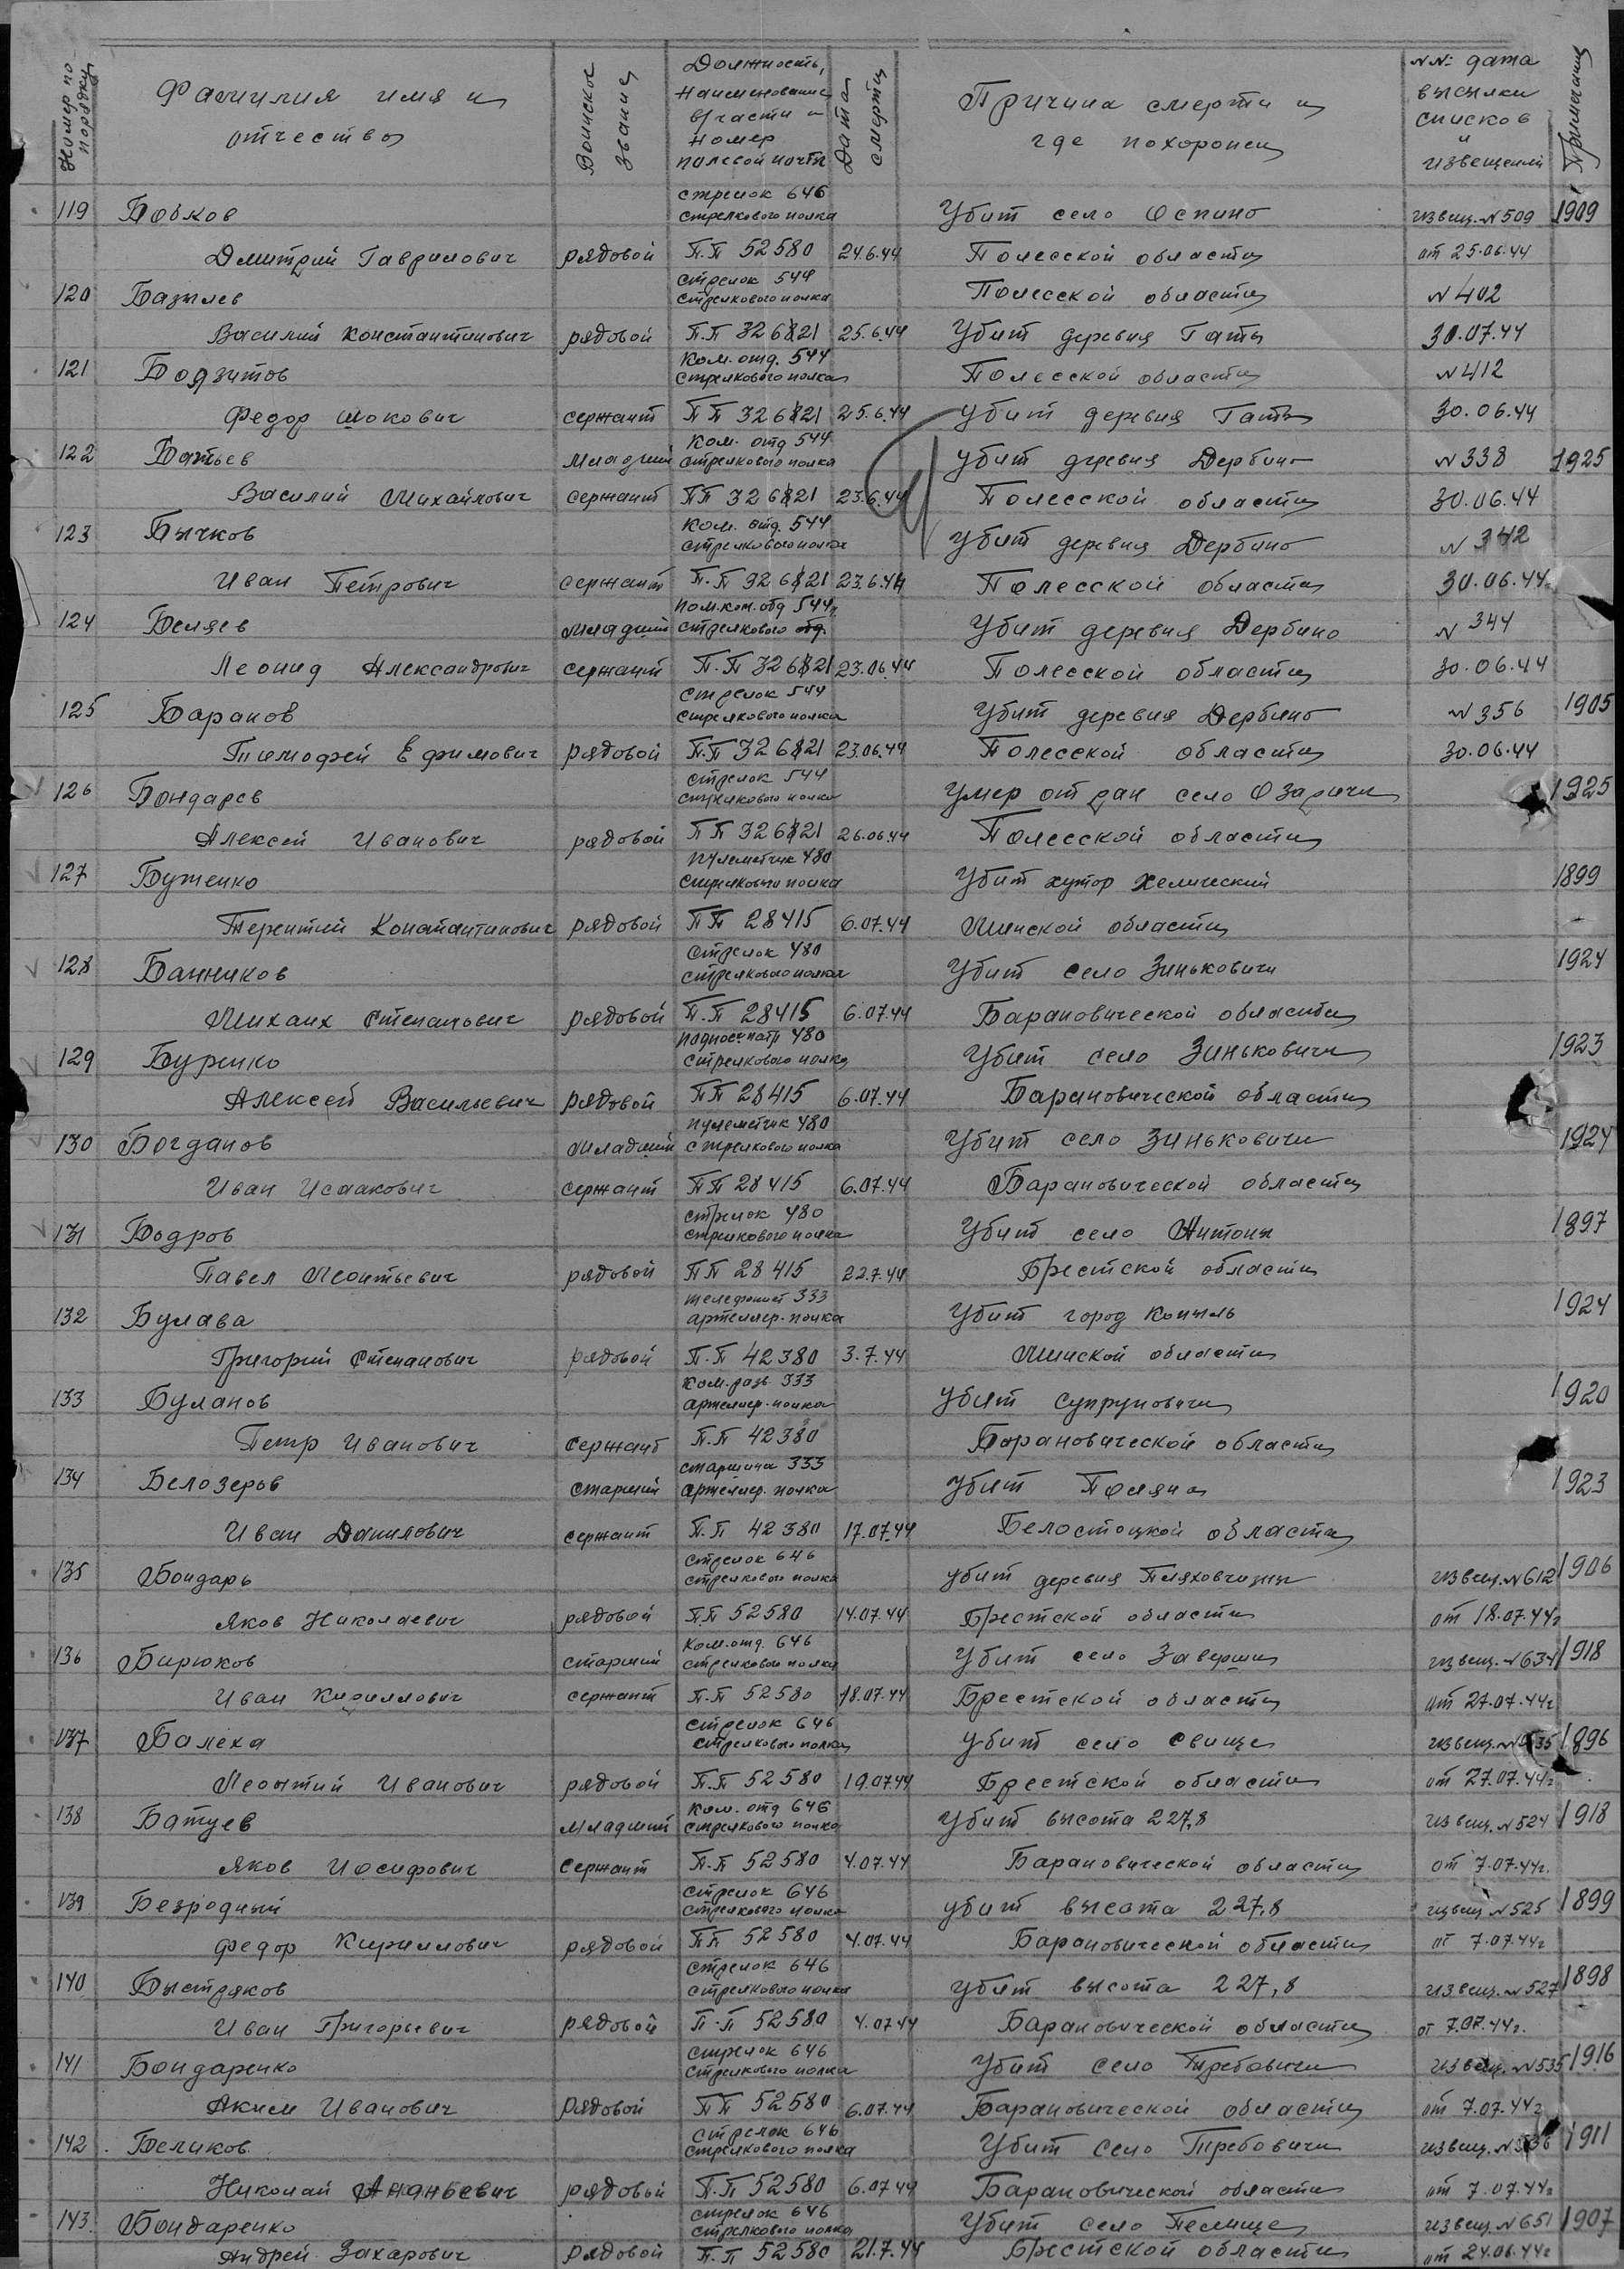 Номер по порядку
Фамилия имя и отчество
Воинское звание
Должность, наименование в/части и номер полевой почты
Дата смерти
Причина смерти и где похоронен
№№ дата высылки списков и извещений
Примечание
стрелок 646
119 Бобков стрелкового полка Убит село Оспино извещ. №509 1909
Дмитрий Гаврилович рядовой П.П 52580 24.6.44 Полесской области от 25.06.44
стрелок 544
120 Базылев стрелкового полка Полесской области №402
Василий Константинович рядовой П.П 32621 25.6.44 Убит деревня Гать 30.07.44
Ком. отд. 544
121 стрелкового полка Полесской области №412
Федор сержант ПП 32621 25.6.44 Убит деревня Гать 30.06.44
Ком. отд 544
122 Батьев младший стрелкового полка убит деревня Дербино №338 1925
Василий Михайлович сержант ПП 32621 23.6.44 Полесской области 30.06.44
Ком. отд. 544
123 Бычков стрелкового полка Убит деревня Дербино №342
Иван Петрович сержант П.П 32621 23.6.44 Полесской области 30.06.44г
пом.ком.отд 544
124 Беляев младший стрелкового Убит деревня Дербино №344
Леонид Александрович сержант П.П 32621 23.06.44 Полесской области 30.06.44
стрелок 544
125 Баранов стрелкового полка Убит деревня Дербино №356 1905
Тимофей Ефимович рядовой П.П 32621 23.06.44 Полесской области 30.06.44
стрелок 544
126 Бондарев стрелкового полка Умер от ран село Озаричи 1925
Алексей Иванович рядовой ПП 32621 26.06.44 Полесской области
пулеметчик 480
127 Буженко стрелкового полка Убит хутор 1899
Терентий Константинович рядовой ПП 28415 6.07.44 Минской области
стрелок 480
128 Банников стрелкового полка Убит село Зиньковичи 1924
Михаил Степанович рядовой П.П 28415 6.07.44 Барановической области
поднос. патр 480
129 Буренко стрелкового полка Убит село Зиньковичи 1923
Алексей Васильевич рядовой ПП 28415 6.07.44 Барановической области
пулеметчик 480
130 Богданов младший стрелкового полка Убит село Зиньковичи 1924
Иван Исаакович сержант ПП 28415 6.07.44 Барановической области
стрелок 480
131 Бодров стрелкового полка Убит село 1897
Павел Леонтьевич рядовой ПП 28415 22.7.44 Брестской области
телефонист 333
132 Булава артеллер. полка Убит город Копыль 1924
Григорий Степанович рядовой П.П 42380 3.7.44 Минской области
Ком. разв 333
133 Буланов артеллер. полка убит Супруновичи 1920
Петр Иванович сержант П.П 42380 Барановической области
старшина 333
134 Белозеров старший артеллер. полка Убит Поляна 1923
Иван Данилович сержант П.П 42380 17.07.44 Белостоцкой области
стрелок 646
135 Бондарь стрелкового полка убит деревня Пляховчизны извещ. №612 1906
Яков Николаевич рядовой П.П 52580 14.07.44 Брестской области от 18.07.44г
Ком. отд. 646
136 Бирюков старший стрелкового полка Убит село Заверши извещ. №634 1918
Иван Кириллович сержант П.П 52580 18.07.44 Брестской области от 27.07.44г
стрелок 646
137 Балеха стрелкового полка убит село Свище извещ. 1896
Леонтий Иванович рядовой П.П 52580 19.07.44 Брестской области от 27.07.44г
Ком. отд 646
138 Батуев младший стрелкового полка Убит высота 227,8 извещ. №524 1918
Яков Иосифович сержант П.П 52580 4.07.44 Барановической области от 7.07.44г.
стрелок 646
139 Безродный стрелкового полка убит высота 227,8 извещ №525 1899
Федор Кириллович рядовой ПП 52580 4.07.44 Барановической области от 7.07.44г
стрелок 646
140 Быстряков стрелкового полка Убит высота 227,8 извещ. №527 1898
Иван Григорьевич рядовой П.П 52580 4.07.44 Барановической области от 7.07.44г.
стрелок 646
141 Бондаренко стрелкового полка Убит село Требовичи извещ. №535 1916
Аким Иванович рядовой ПП 52580 6.07.44 Барановической области от 7.07.44г
стрелок 646
142 Беликов стрелкового полка Убит село Требовичи извещ. №536 1911
Николай Ананьевич рядовой П.П 52580 6.07.44 Барановической области от 7.07.44г
стрелок 646
143. Бондаренко стрелкового полка Убит село Пелище извещ. №651 1907
Андрей Захарович рядовой П.П 52580 21.7.44 Брестской области от 24.06.44г